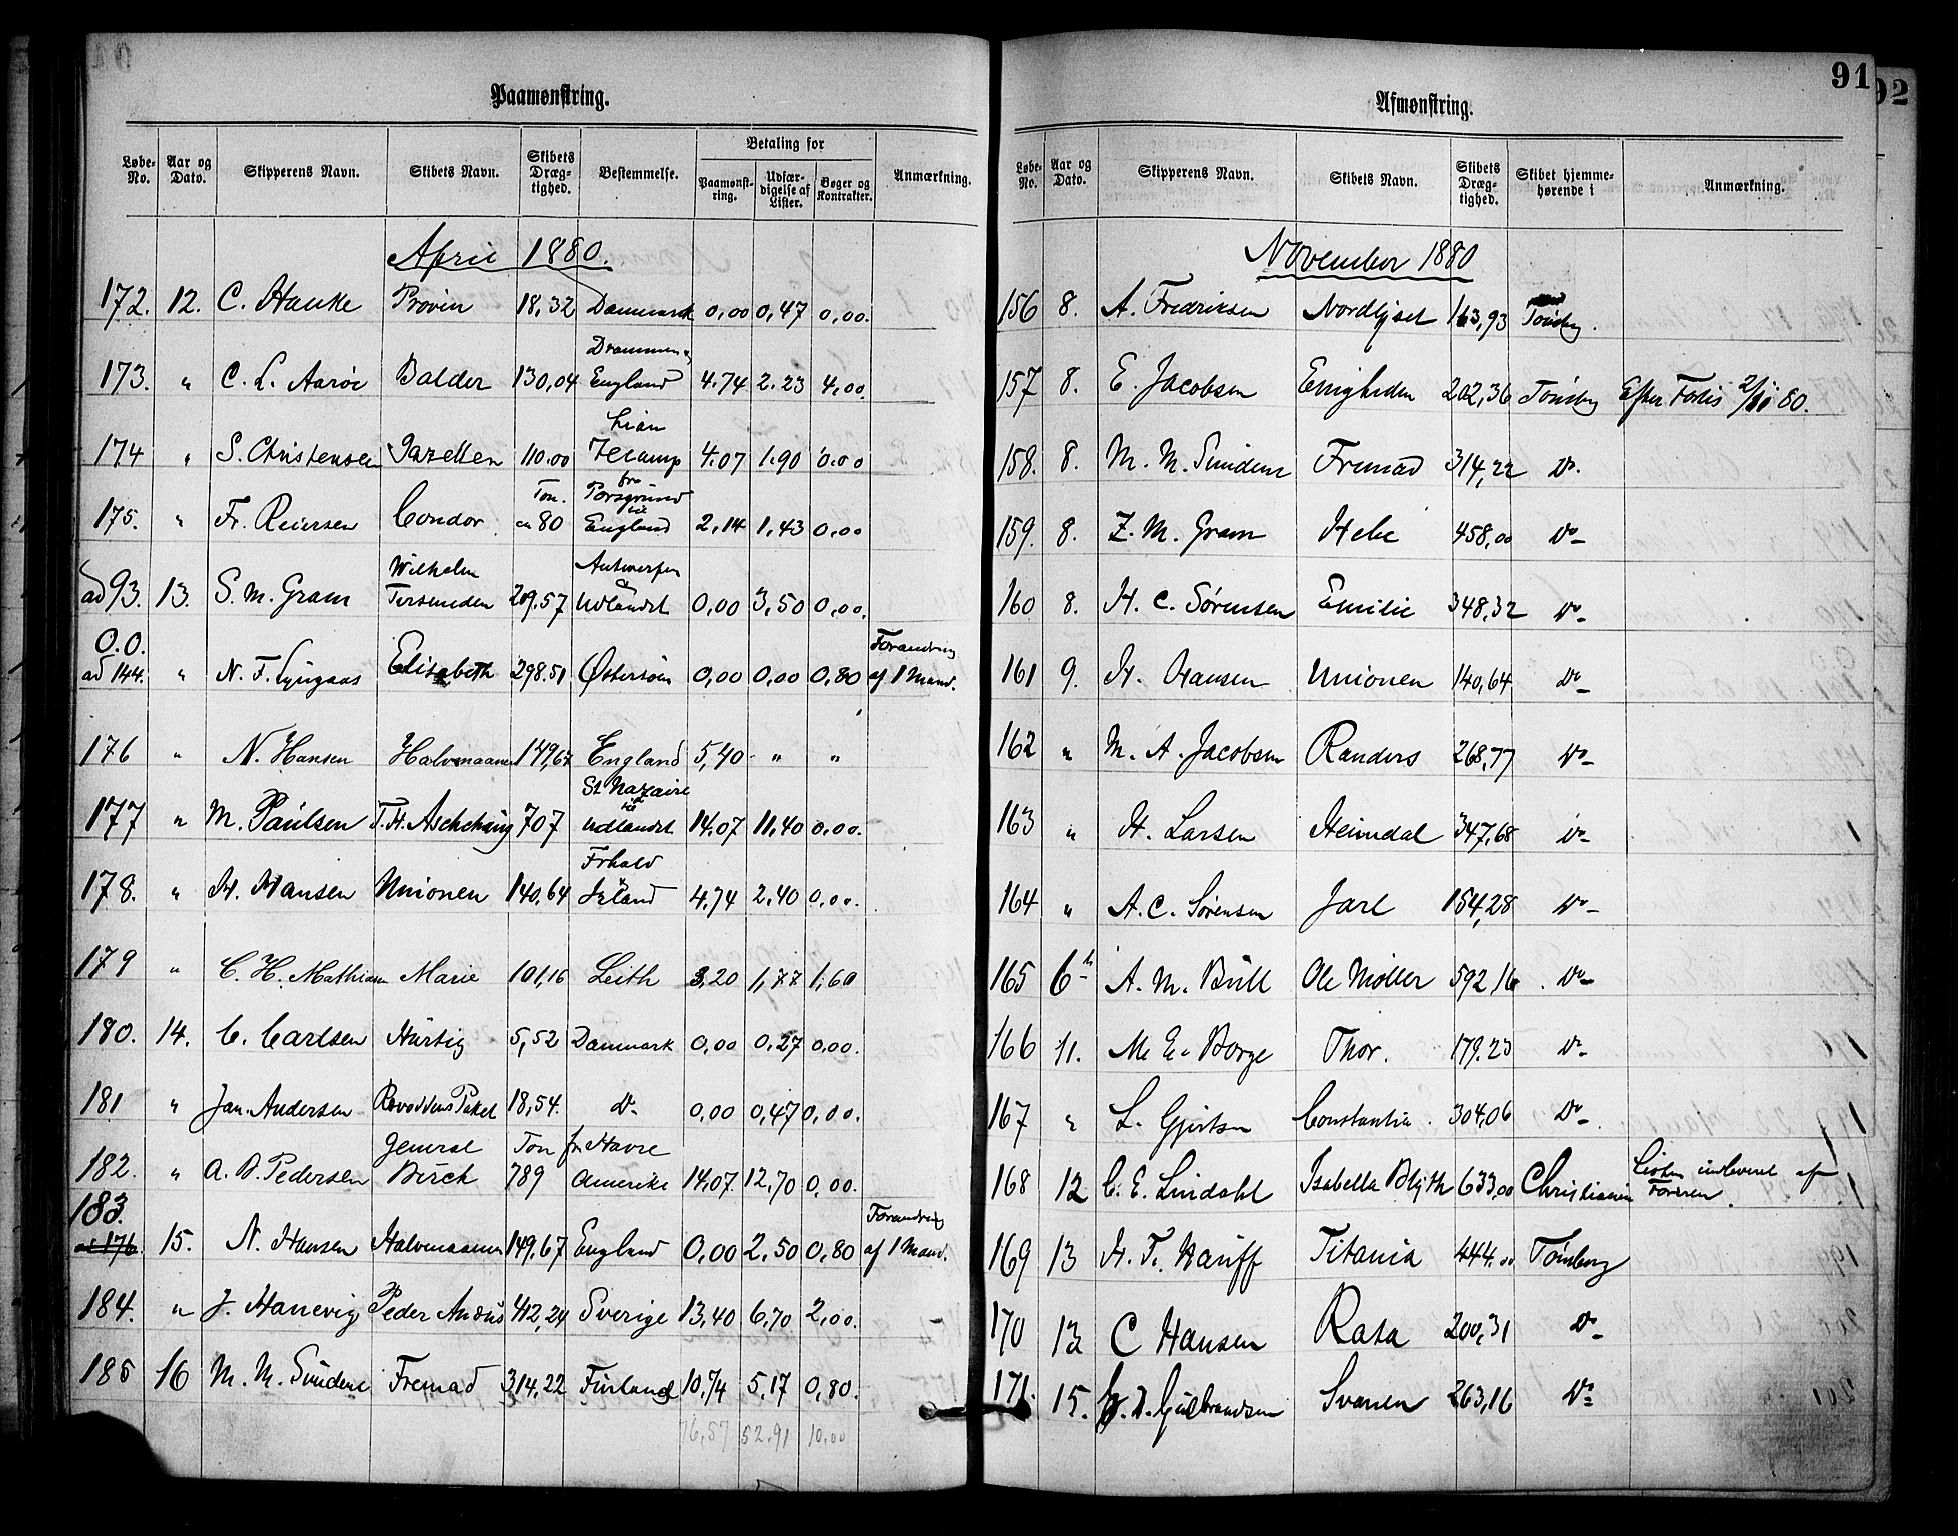 91
92
Paamønstring.
Løbe-No. Aar og Dato. Skipperens Navn. Skibets Navn. Skibets Dræg-tighed. Bestemmelse. Betaling for Paamønst-ring. Udfær-digelse af Lister. Bøger og Kontrakter. Anmærkning.
April 1880.
172. 12. C. Hanke Prøven 18,32 Danmark 0,00 0,47 0,00.
Drammen
173. " C. L. Aarøe Balder 130,04 England 4.74 2.23 4,00.
174 " S. Christensen Gazellen 110.00 Fecamp 4.07 1.90 0.00
fra
Ton. Porsgrund
175. " Fr. Reiersen Condor 80 England 2,14 1,43 0,00
Wilhelm Antwerpen
ad 93. 13. S. M. Gram Torsenden 209.57 Udlandet 0,00 3,50 0,00.
0.0. Forandring
ad 144. " N. F. Lyngaas Elisabeth 298.51 Østersøen 0,00 0,00 0,80 af 1 Mand.
176 " N. Hansen Halvmaanen 149,67 England 5,40 " "
St Nazaire
177 " M. Paulsen T. H. Aschehoug 707 Udlandet 14.07 11,40 0,00.
Frhald
178. " H. Hansen Unionen 140,64 Irland 4.74 2,40 0,00.
179 " C. H. Mathiasen Marie 101,16 Leith 3,20 1,77 1,60
180. 14. C. Carlsen Hurtig 5,52 Danmark 0,00 0,27 0,00.
181 " Jan. Andersen Paket 18,54. do 0,00 0,47 0,00.
General Ton fr Havre
182. " A. B. Pedersen Birch 789 Amerika 14.07. 12,70 0,00.
183. Forandring
ad 176. 15. N. Hansen Halvmaanen 149,67 England 0,00 2,50 0,80 af 1 Mand.
184. " J. Hanevig Peder Anders 412,24 Sverige 13,40 6,70 2,00.
185 16 M. M. Sundene Fremad 314,22 Finland 10,74 5,17 0,80.
76,57 52.91 10,00
Afmønstring.
Løbe-No. Aar og Dato. Skipperens Navn. Skibets Navn. Skibets Dræg-tighed. Skibet hjemme-hørende i Anmærkning.
November 1880
156 8. A. Fredriksen Nordlyset 163,93 Tønsbg.
157 8. E. Jacobsen Enigheden 202,36 Tønsbg Efter Forlis 2/11 80.
158. 8. M. M. Sundene Fremad 314,22 Do.
159. 8. Z. M. Gram Hebe 458,00 Do
160 8. H. C. Sørensen Emilie 348,32 Do
161 9. H. Hansen Unionen 140,64 Do
162 " M. A. Jacobsen Randers 268,77 Do
163 " H. Larsen Heimdal 347,68 Do
164 " A. C. Sørensen Jarl 154,28 Do
165 6th A. M. Bull Ole Møller 592,16 Do
166 11. M. E. Borge Thor. 179.23 Do
167 " L. Gjertsen Constantia 304,06 Do
168 12 C. E. Lindahl Isabella Blyth 633,00 Christiania Listen indleveret af Føreren.
169 13 H. T. Hauff Titania 444.00 Tønsberg
170 13 C Hansen Rata 200,31 Do
171. 15. Gulbrandsen Svanen 263,16 Do